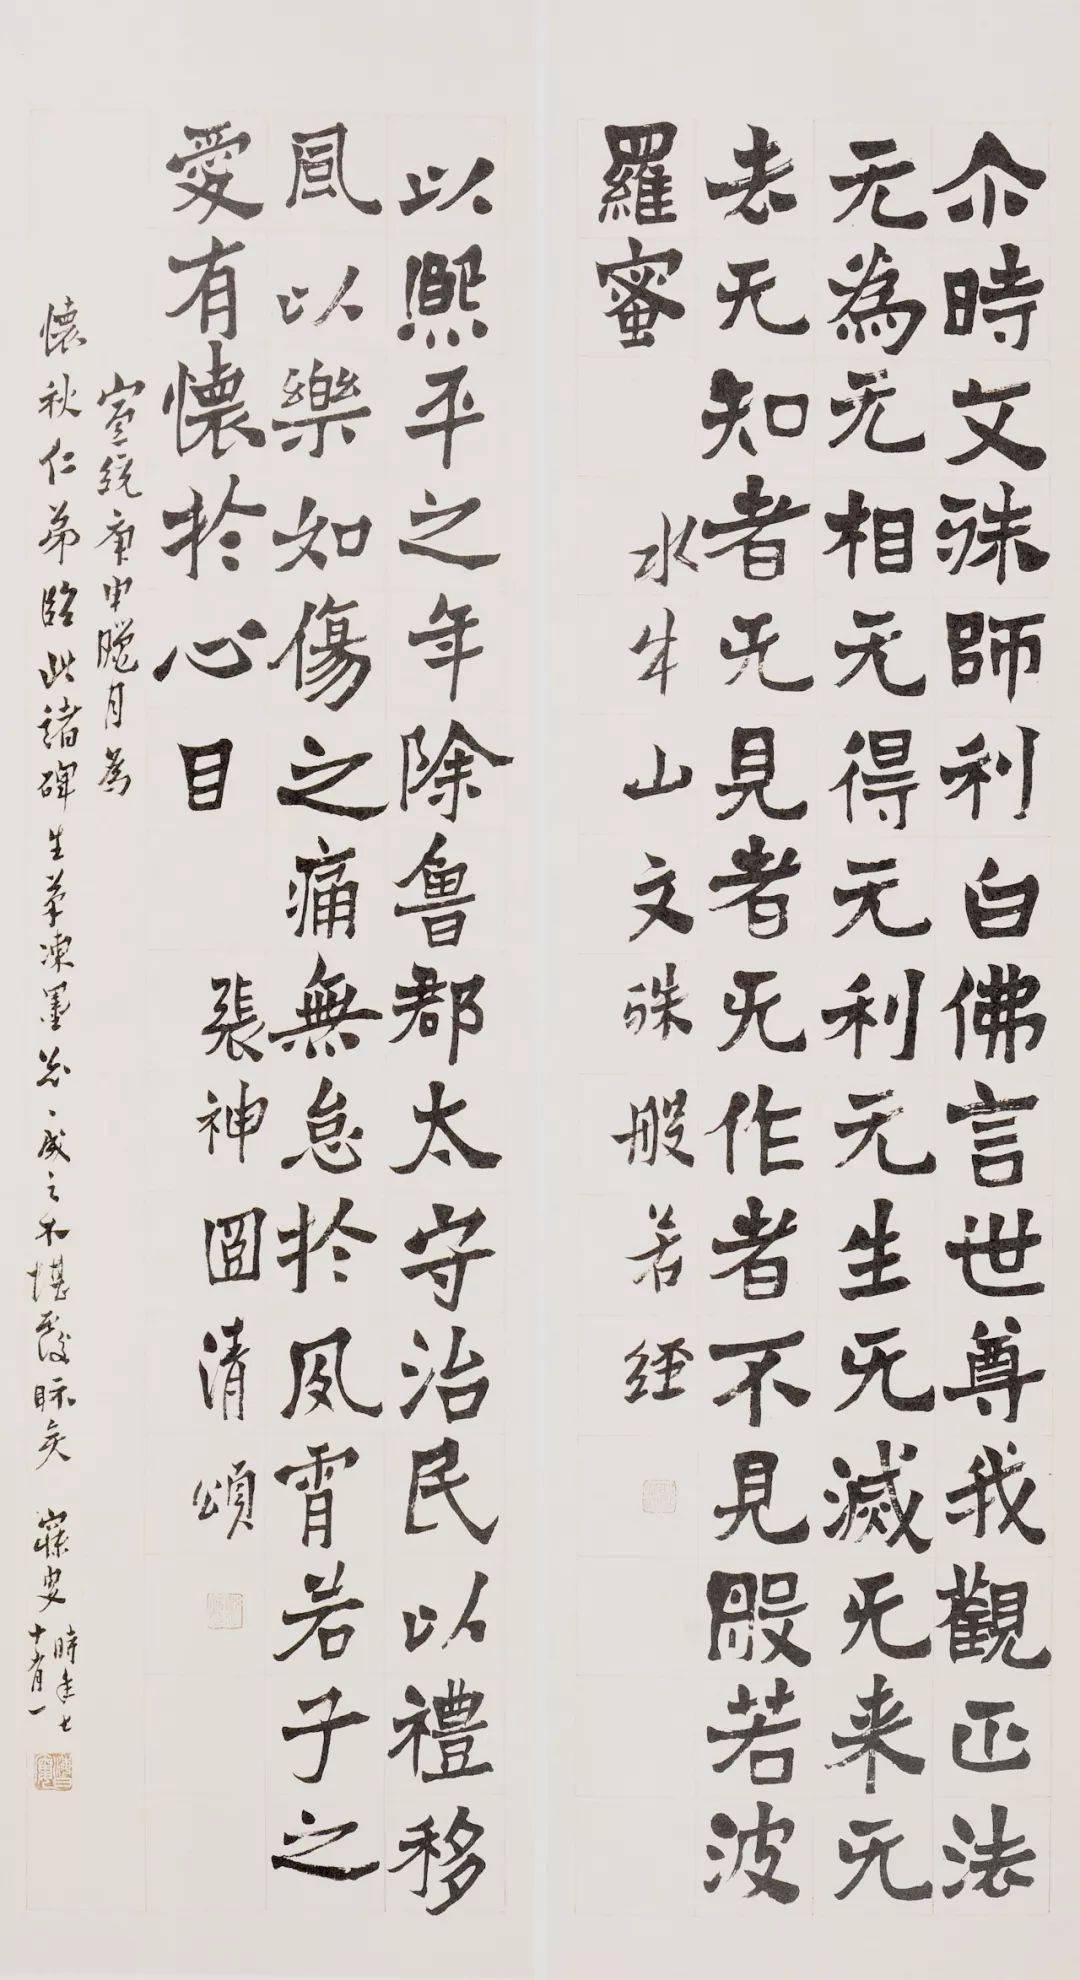 尒時文殊師利白佛言世尊我觀正法
无為无相无得无利无生无滅无来无
去无知者无見者无作者不見般若波
羅蜜
水牛山文殊般若經
以熙平之年除魯郡太守治民以禮移
風以樂如傷之痛無怠於夙霄若子之
愛有懷於心目
張神囧清頌
宣統庚申臘月為
懷秋仁弟臨此諸碑生筆凍墨忽〻成之不堪覆眎矣 寐叟
時年七
十有一